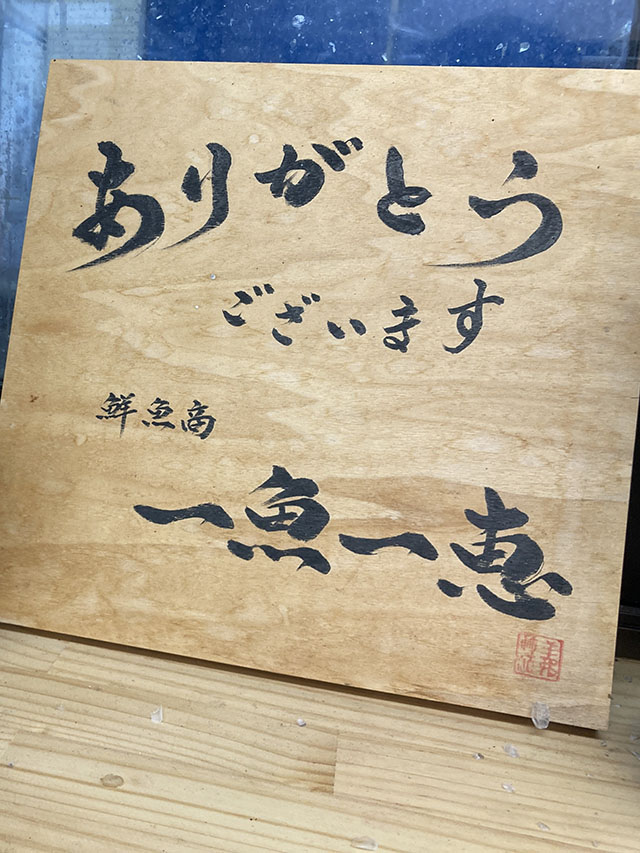 ありがとう
ございます
鮮魚商
一魚一恵